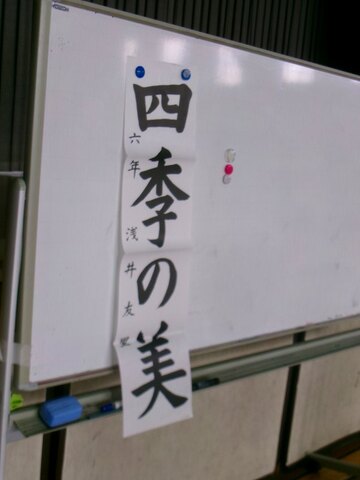 四季の美
六年 浅井友里